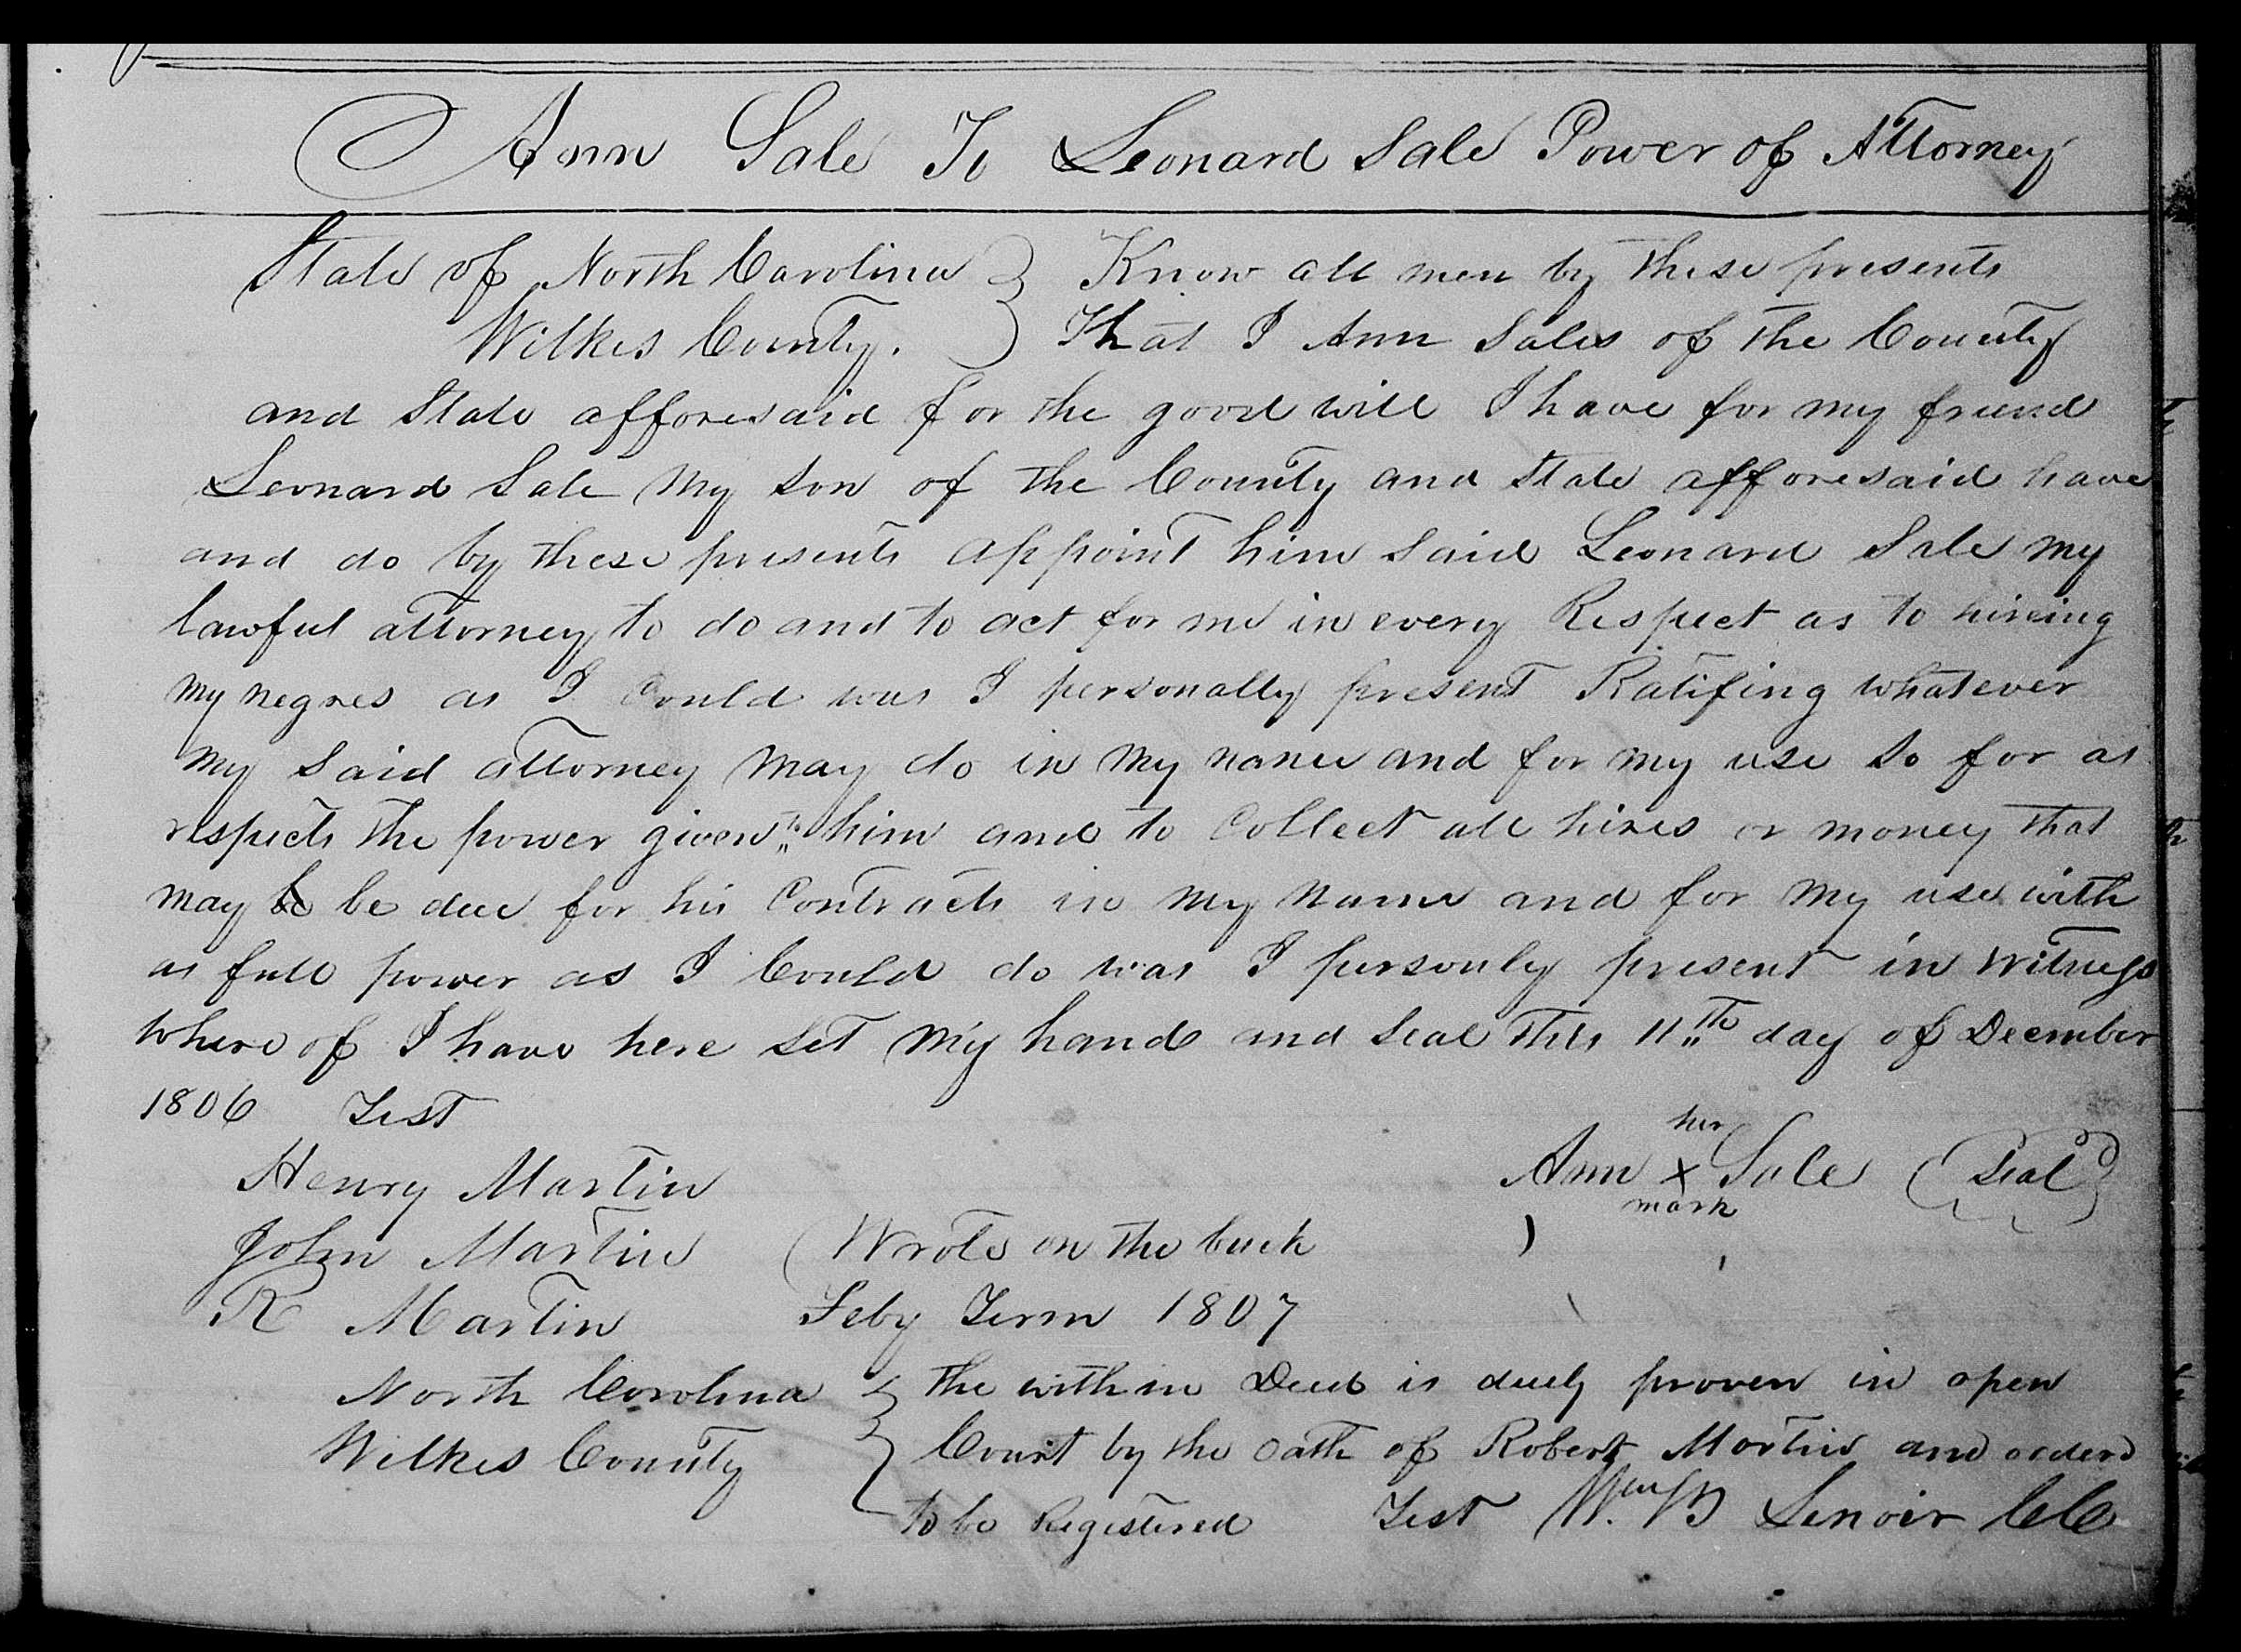 Ann Sale To Leonard Sale Power of Attorney
State of North Carolina } Know all men by these presents
Wilkes County. } That I Ann Sales of the County
and State afforesaid for the good will I have for my friend
Leonard Sale my son of the County and State afforesaid have
and do by these presents appoint him said Leonard Sale my
lawful attorney to do and to act for me in every Respect as to hireing
my negres as I Could was I personally present Ratifing whatever
my said attorney may do in my name and for my use so for as
respects the power given to him and to Collect all hires or money that
may be be due for his Contracts in my name and for my use with
as full power as I Could do was I personly present in witness
where of I have here set my hand and seal this 11th day of December
1806 Test
her
Henry Martin Ann x Sale (Seal)
mark
John Martin (Wrote on the back )
R Martin Feby Term 1807
North Carolina } the within Deed is duely proven in open
Wilkes County } Court by the oath of Robert Martin and orderd
to be Registered Test Wm B Lenoir CC